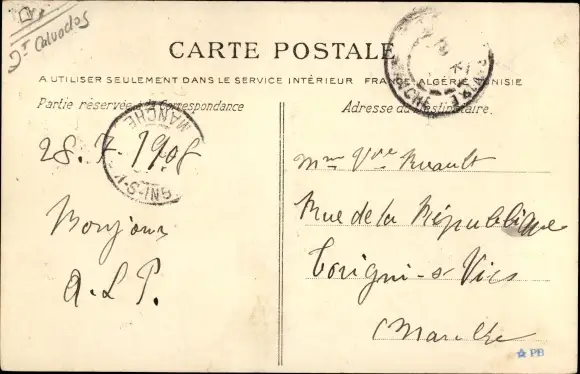 Dt Calvados
CARTE POSTALE
A UTILISER SEULEMENT DANS LE SERVICE INTÉRIEUR FRANCE-ALGÉRIE TUNISIE
Partie réservée à la Correspondance
Adresse du Destinataire.
MANCHE
28.7.1908
GNI-S-V
Bonjour
A.L.P.
Mme Vve Ruault
Rue de la République
Torigni-s-Vire
Manche
PB